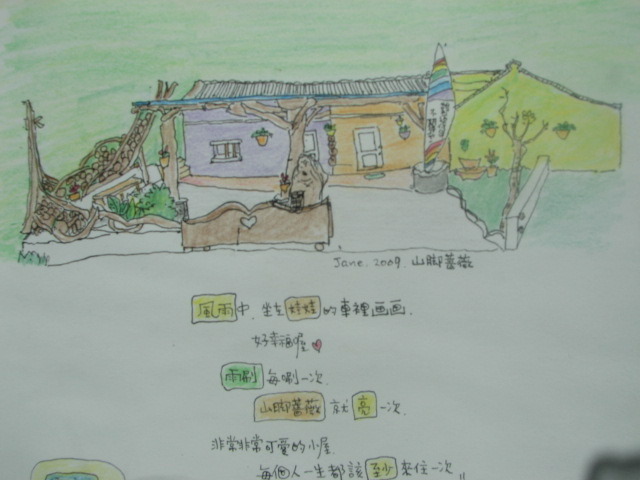 Jane. 2009. 山腳薔薇
風雨中. 坐在娃娃的車裡画画.
好幸福喔
雨刷 每唰一次.
山腳薔薇 就 亮 一次.
非常非常可愛的小屋.
每個人一生都該 至少 來住一次 !!